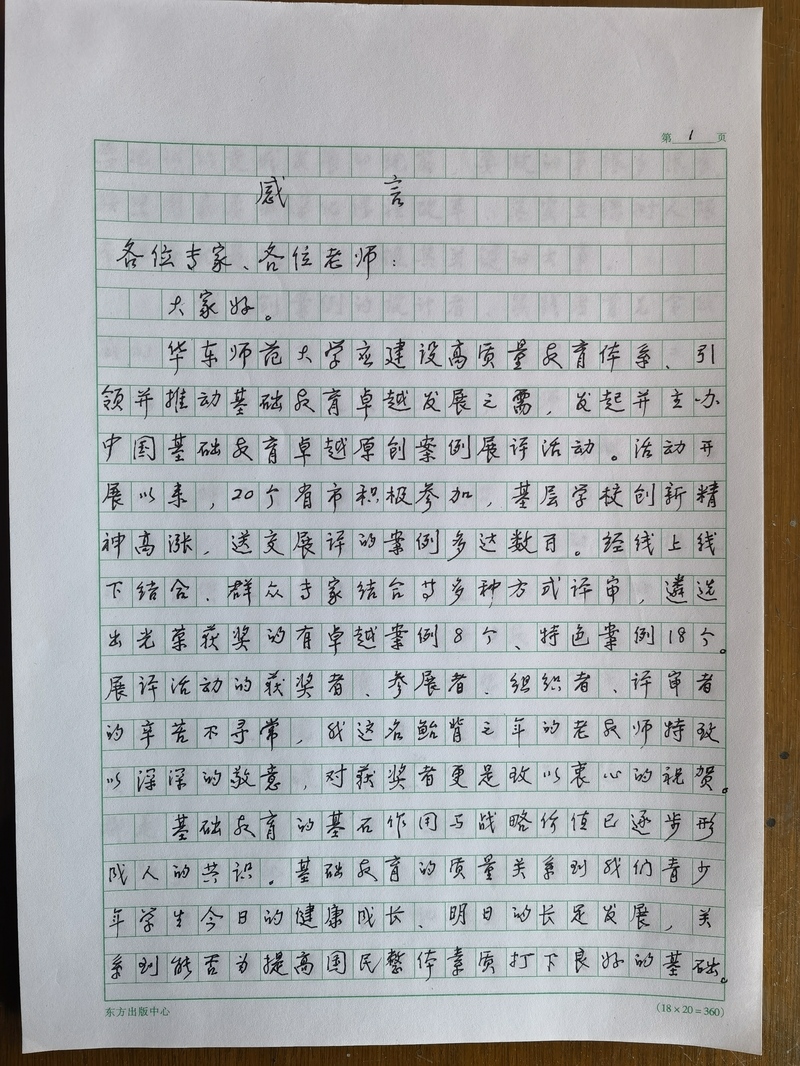 第 1 页
感言
各位专家、各位老师：
大家好。
华东师范大学应建设高质量教育体系、引
领并推动基础教育卓越发展之需，发起并主办
中国基础教育卓越原创案例展评活动。活动开
展以来，20个省市积极参加，基层学校创新精
神高涨，送交展评的案例多达数百。经线上线
下结合、群众专家结合等多种方式评审，遴选
出光荣获奖的有卓越案例8个、特色案例18个。
展评活动的获奖者、参展者、组织者、评审者
的辛苦不寻常，我这名鲐背之年的老教师特致
以深深的敬意，对获奖者更是致以衷心的祝贺。
基础教育的基石作用与战略价值已逐步形
成人的共识。基础教育的质量关系到我们青少
年学生今日的健康成长、明日的长足发展，关
系到能否为提高国民整体素质打下良好的基础。
东方出版中心
（18×20=360）